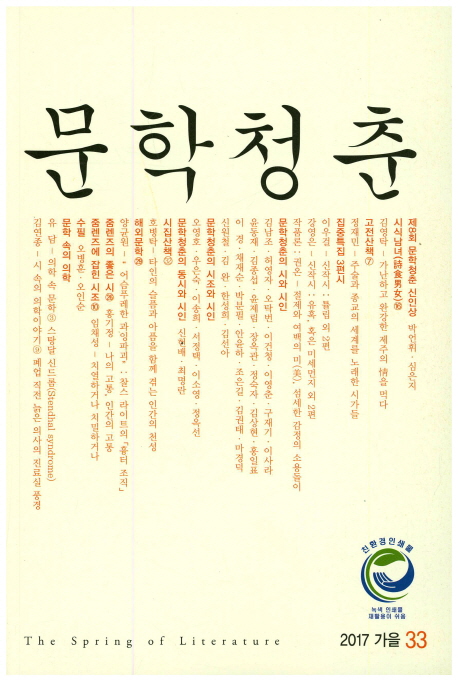 문학청춘
제8회 문학청춘 신인상 박언휘 · 심은지
시식남녀(詩食男女)⑯
김영탁 – 가난하고 완강한 제주의 情을 먹다
고전산책⑦
정재민 – 주술과 종교의 세계를 노래한 시가들
집중특집 3편시
이우걸 – 신작시 : 튤립 외 2편
강영은 – 신작시 : 유혹, 혹은 미세먼지 외 2편
작품론 : 권온 – 절제와 여백의 미(美), 섬세한 감정의 소용돌이
문학청춘의 시와 시인
김남조 · 허영자 · 오탁번 · 이건청 · 이영춘 · 구재기 · 이사라
윤동재 · 김종섭 · 윤제림 · 장옥관 · 정숙자 · 김상현 · 홍일표
이경 · 채재순 · 박분필 · 안윤하 · 조은길 · 김권태 · 마경덕
신원철 · 김완 · 한성희 · 김선아
문학청춘의 시조와 시인
오영호 · 우은숙 · 이송희 · 서정택 · 이소영 · 정옥선
문학청춘의 동시와 시인 신 배 · 최명란
시집산책⑫
호병탁 – 타인의 슬픔과 아픔을 함께 겪는 인간의 천성
해외문학㉙
양균원 – “여승무례한 과잉파괴” : 찰스 라이트의 『흉터 조직』
줌렌즈의 좋은 시㉖ 홍기정 – 나의 고통, 인간의 고통
줌렌즈에 잡힌 시조⑩ 임채성 – 치열하거나 치밀하거나
수필 오병훈 · 오인순
문학 속의 의학
유담 – 의학 속 문학⑨ 스탕달 신드롬(Stendhal syndrome)
김연종 – 시 속의 의학이야기⑨ 폐업 직전 늙은 의사의 진료실 풍경
친환경인쇄물
녹색 인쇄물
재활용이 쉬움
The Spring of Literature
2017 가을 33